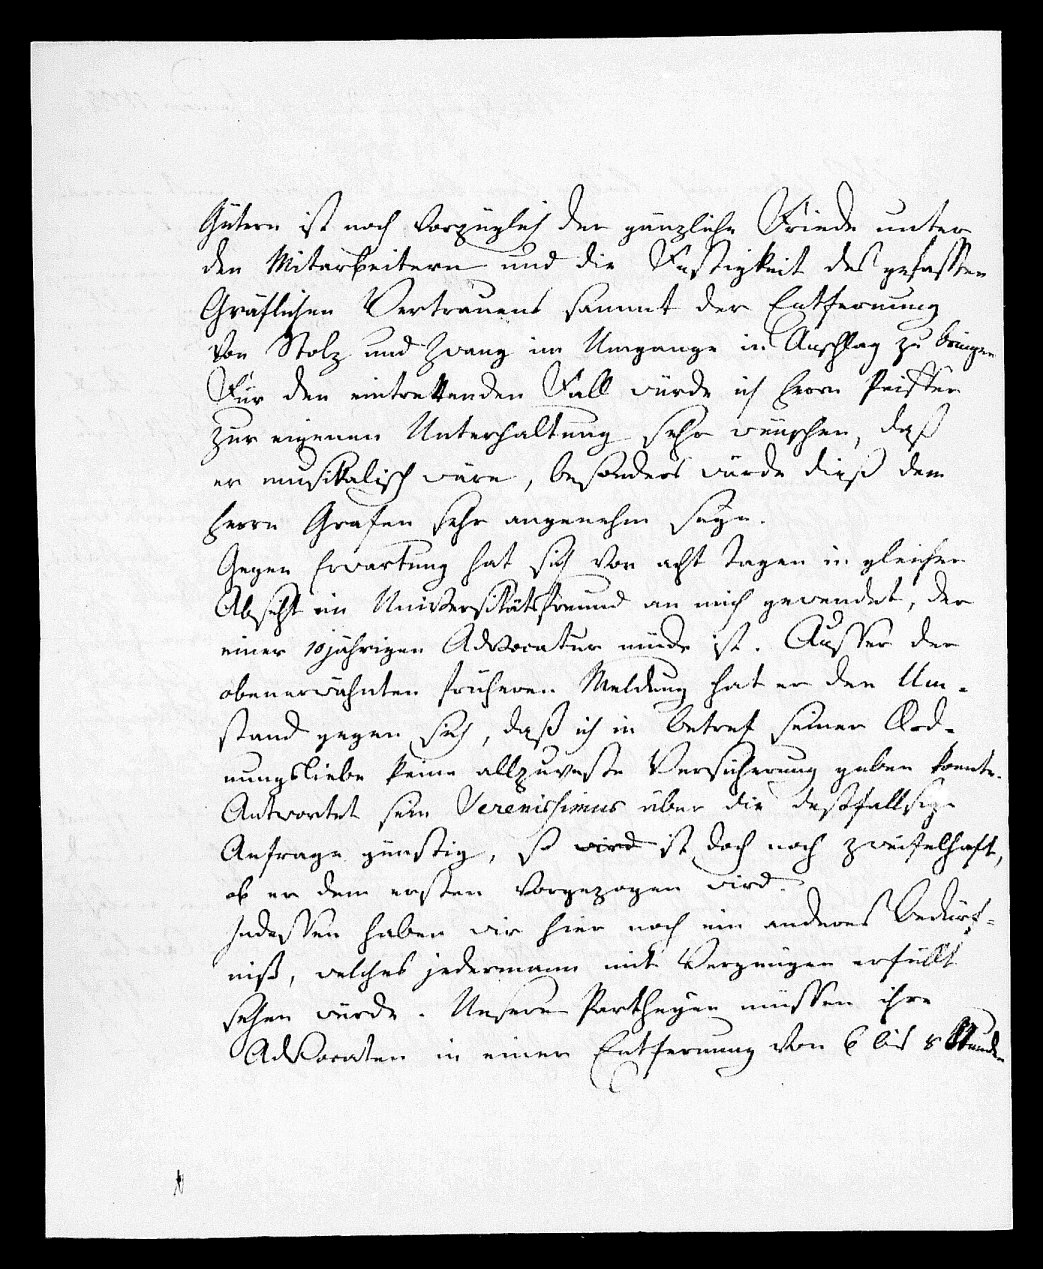 Gütern ist noch vorzüglich der gänzliche Friede unter
den Mitarbeitern und die Festigkeit des gefassten
Gräflichen Vertrauens sammt der Entfernung
von Stolz und Zwang im Umgange in Anschlag zu bringen
Für den eintrettenden Fall würde ich Herrn Peisser
zur eigenen Unterhaltung sehr wünschen, daß
er musikalisch wäre, besonders würde dieß dem
Herrn Grafen sehr angenehm seyn.
Gegen Erwartung hat sich vor acht Tagen in gleicher
Absicht ein Universitätsfreund an mich gewendet, der
einer 10jährigen Advocatur müde ist. Ausser der
obenerwähnten früheren Meldung hat er den Um-
stand gegen sich, daß ich in betref seiner Ord-
nungsliebe keine allzuveste Versicherung geben konnte.
Antwortet sein Serenissimus über die desfallsige
Anfrage günstig, so wird ist doch noch zweifelhaft,
ob er dem ersten vorgezogen wird.
Indessen haben wir hier noch ein anderes Bedürf-
niß, welches jedermann mit Vergnügen erfüllt
sehen würde. Unsere Partheyen müssen ihre
Advocaten in einer Entfernung von 6 bis 8 Stunden